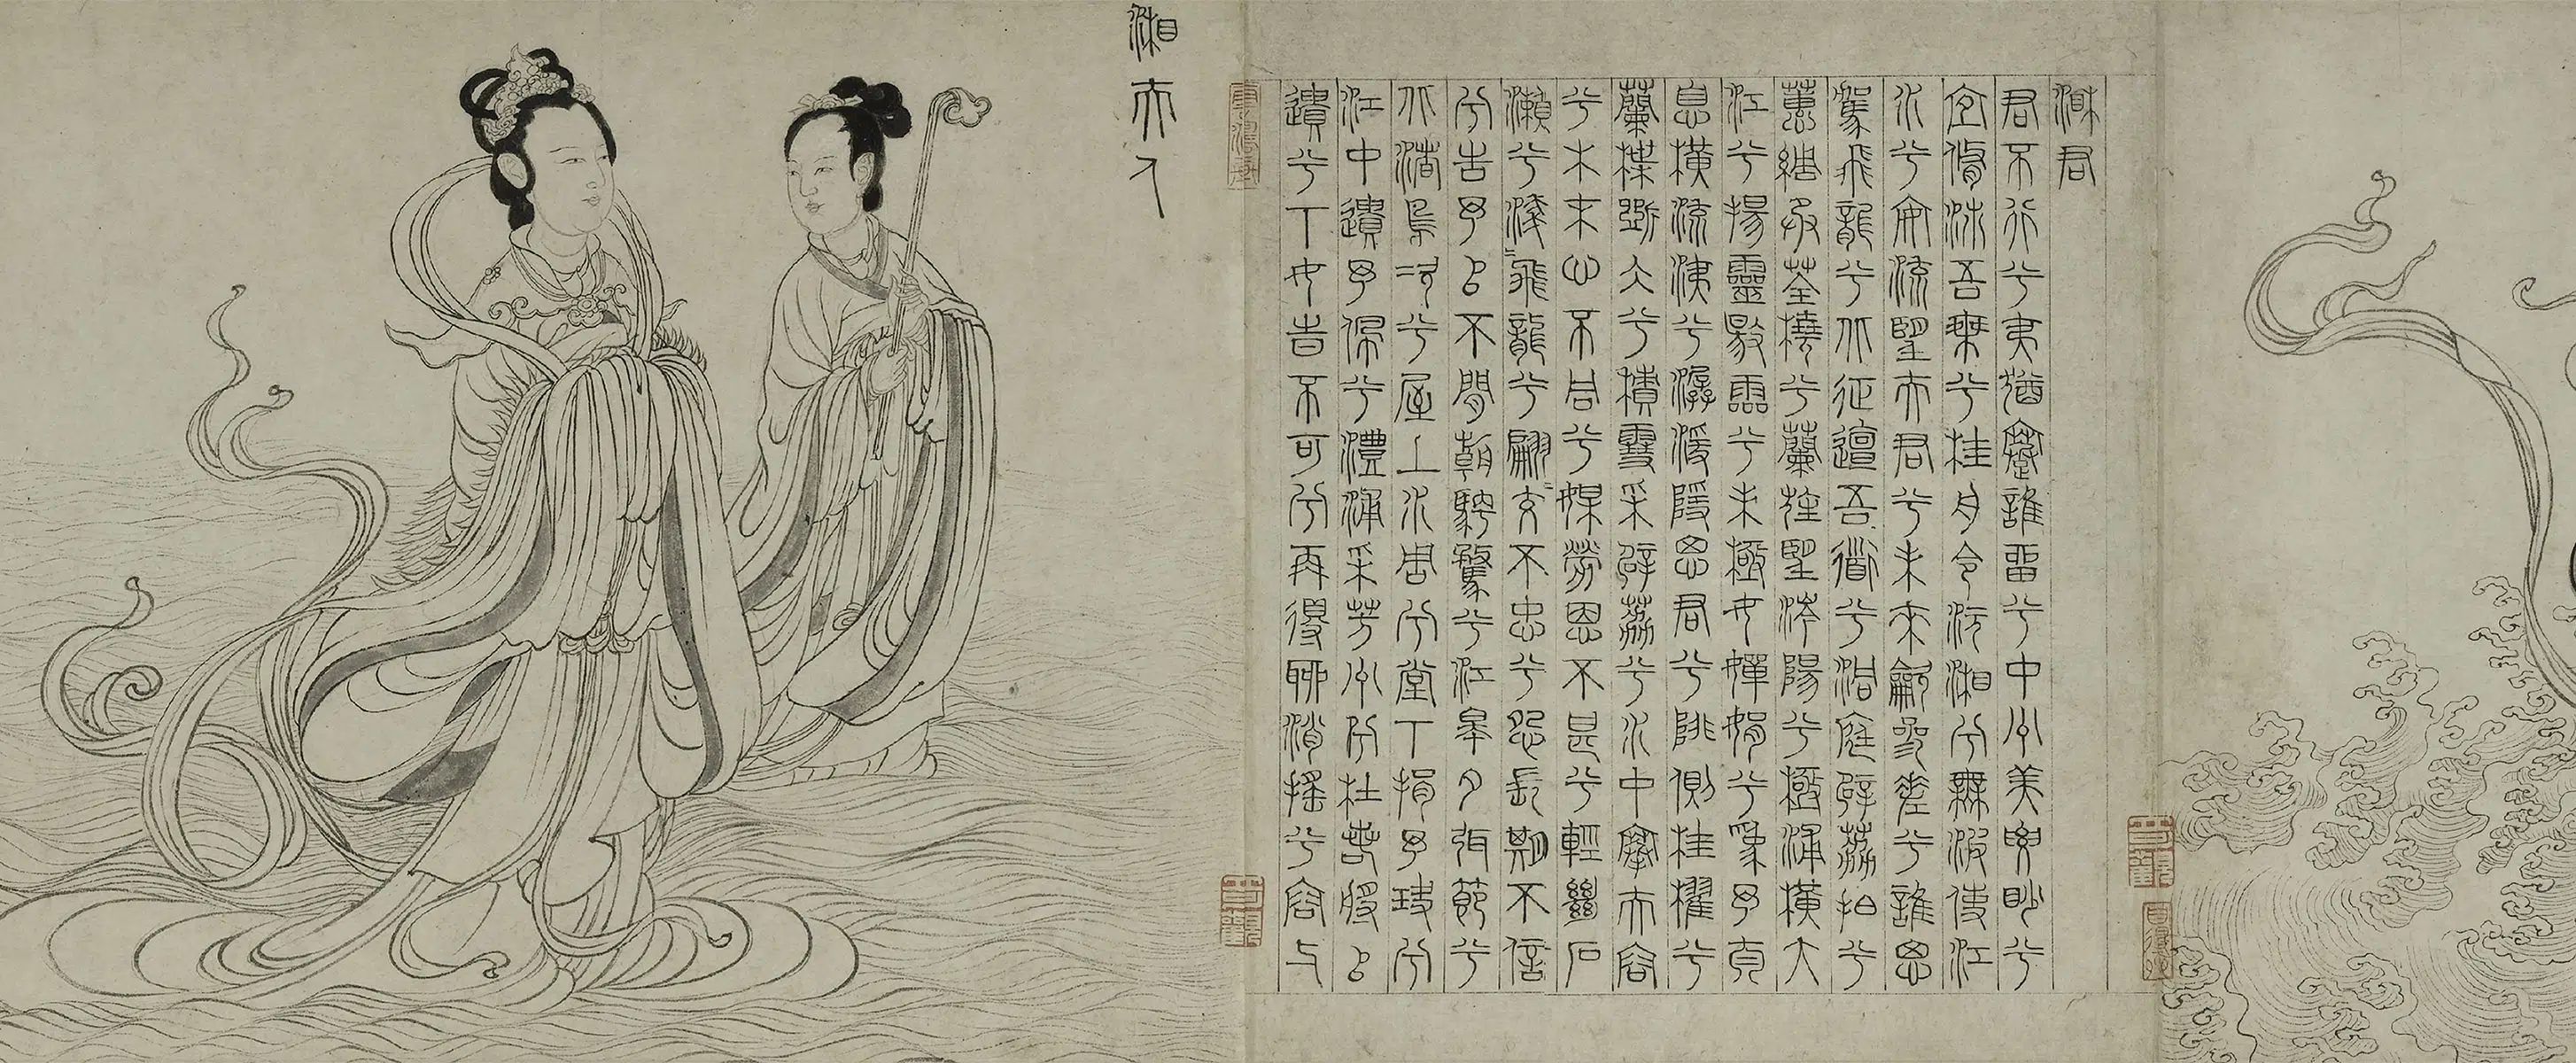 湘君
君不行兮夷猶蹇誰留兮中州美要眇兮
宜脩沛吾乘兮桂舟令沅湘兮無波使江
水兮安流望夫君兮未來龡參差兮誰思
駕飛龍兮北征邅吾道兮洞庭薜荔拍兮
蕙綢承荃橈兮蘭旌望涔陽兮極浦橫大
江兮揚靈敭霝兮未極女嬋媛兮爲予
息橫流涕兮潺湲隱思君兮陫側桂櫂兮
蘭枻斲冰兮積雪采薜荔兮水中搴夫容
兮木末心不同兮媒勞恩不甚兮輕絕石
瀨兮淺〻飛龍兮翩〻交不忠兮怨長期不信
兮告予以不閒朝騁騖兮江皋夕弭節兮
北渚鳥次兮屋上水周兮堂下捐予玦兮
江中遺予佩兮澧浦采芳州兮杜若將以
遺兮下女時不可兮再得聊消搖兮容與
湘夫人